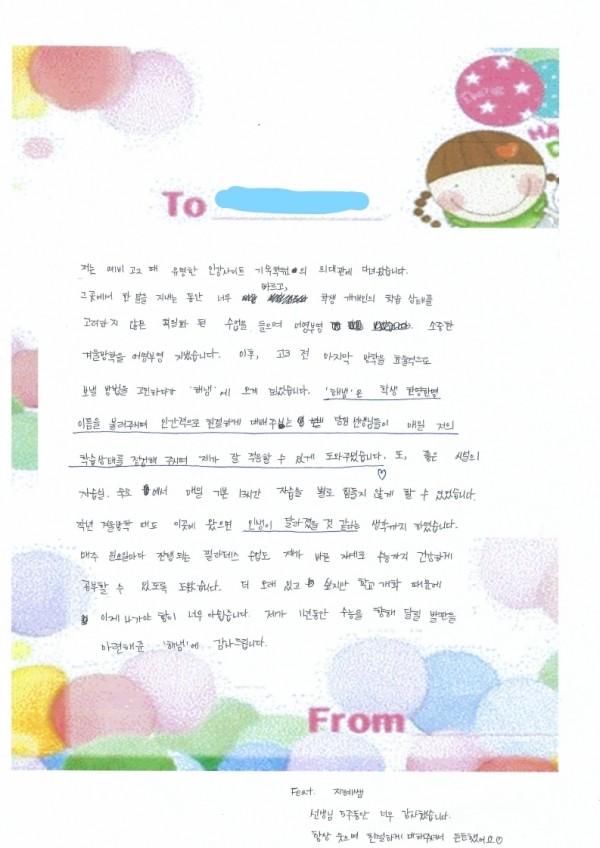 Thank
HA
D
To
저는 예비 고3 때 유명한 인강사이트 기숙학원의 의대관에 다녀왔습니다.
그곳에서 한 달을 지내는 동안 너무 빠르고, 학생 개개인의 학습 상태를
고려하지 않은 획일화 된 수업을 들으며 어영부영 소중한
겨울방학을 어영부영 지냈습니다. 이후, 고3 전 마지막 방학을 효율적으로
보낼 방법을 고민하다가 '해냄'에 오게 되었습니다. '해냄'은 학생 한명한명
이름을 불러주시며 인간적으로 친절하게 대해주시는 담임 선생님들이 매일 저의
학습상태를 점검해 주시며 제가 잘 적응할 수 있게 도와주었습니다. 또, 좋은 시설의
자습실, 숙소에서 매일 기본 13시간 자습을 별로 힘들지 않게 할 수 있었습니다.
작년 겨울방학 때도 이곳에 왔으면 인생이 달라졌을 것 같다는 생각까지 하였습니다.
매주 일요일마다 진행되는 필라테스 수업도 제가 바른 자세로 수능까지 건강하게
공부할 수 있도록 도왔습니다. 더 오래 있고 싶지만 학교 개학 때문에
이제 나가야 함이 너무 아쉽습니다. 제가 1년동안 수능을 향해 달릴 발판을
마련해준 '해냄'에 감사드립니다.
From
Feat. 지혜쌤
선생님 5주동안 너무 감사했습니다.
항상 웃으며 친절하게 대해주셔서 든든했어요♡